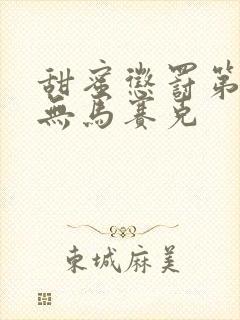 甜蜜懲罰第
無馬賽克
東城麻美